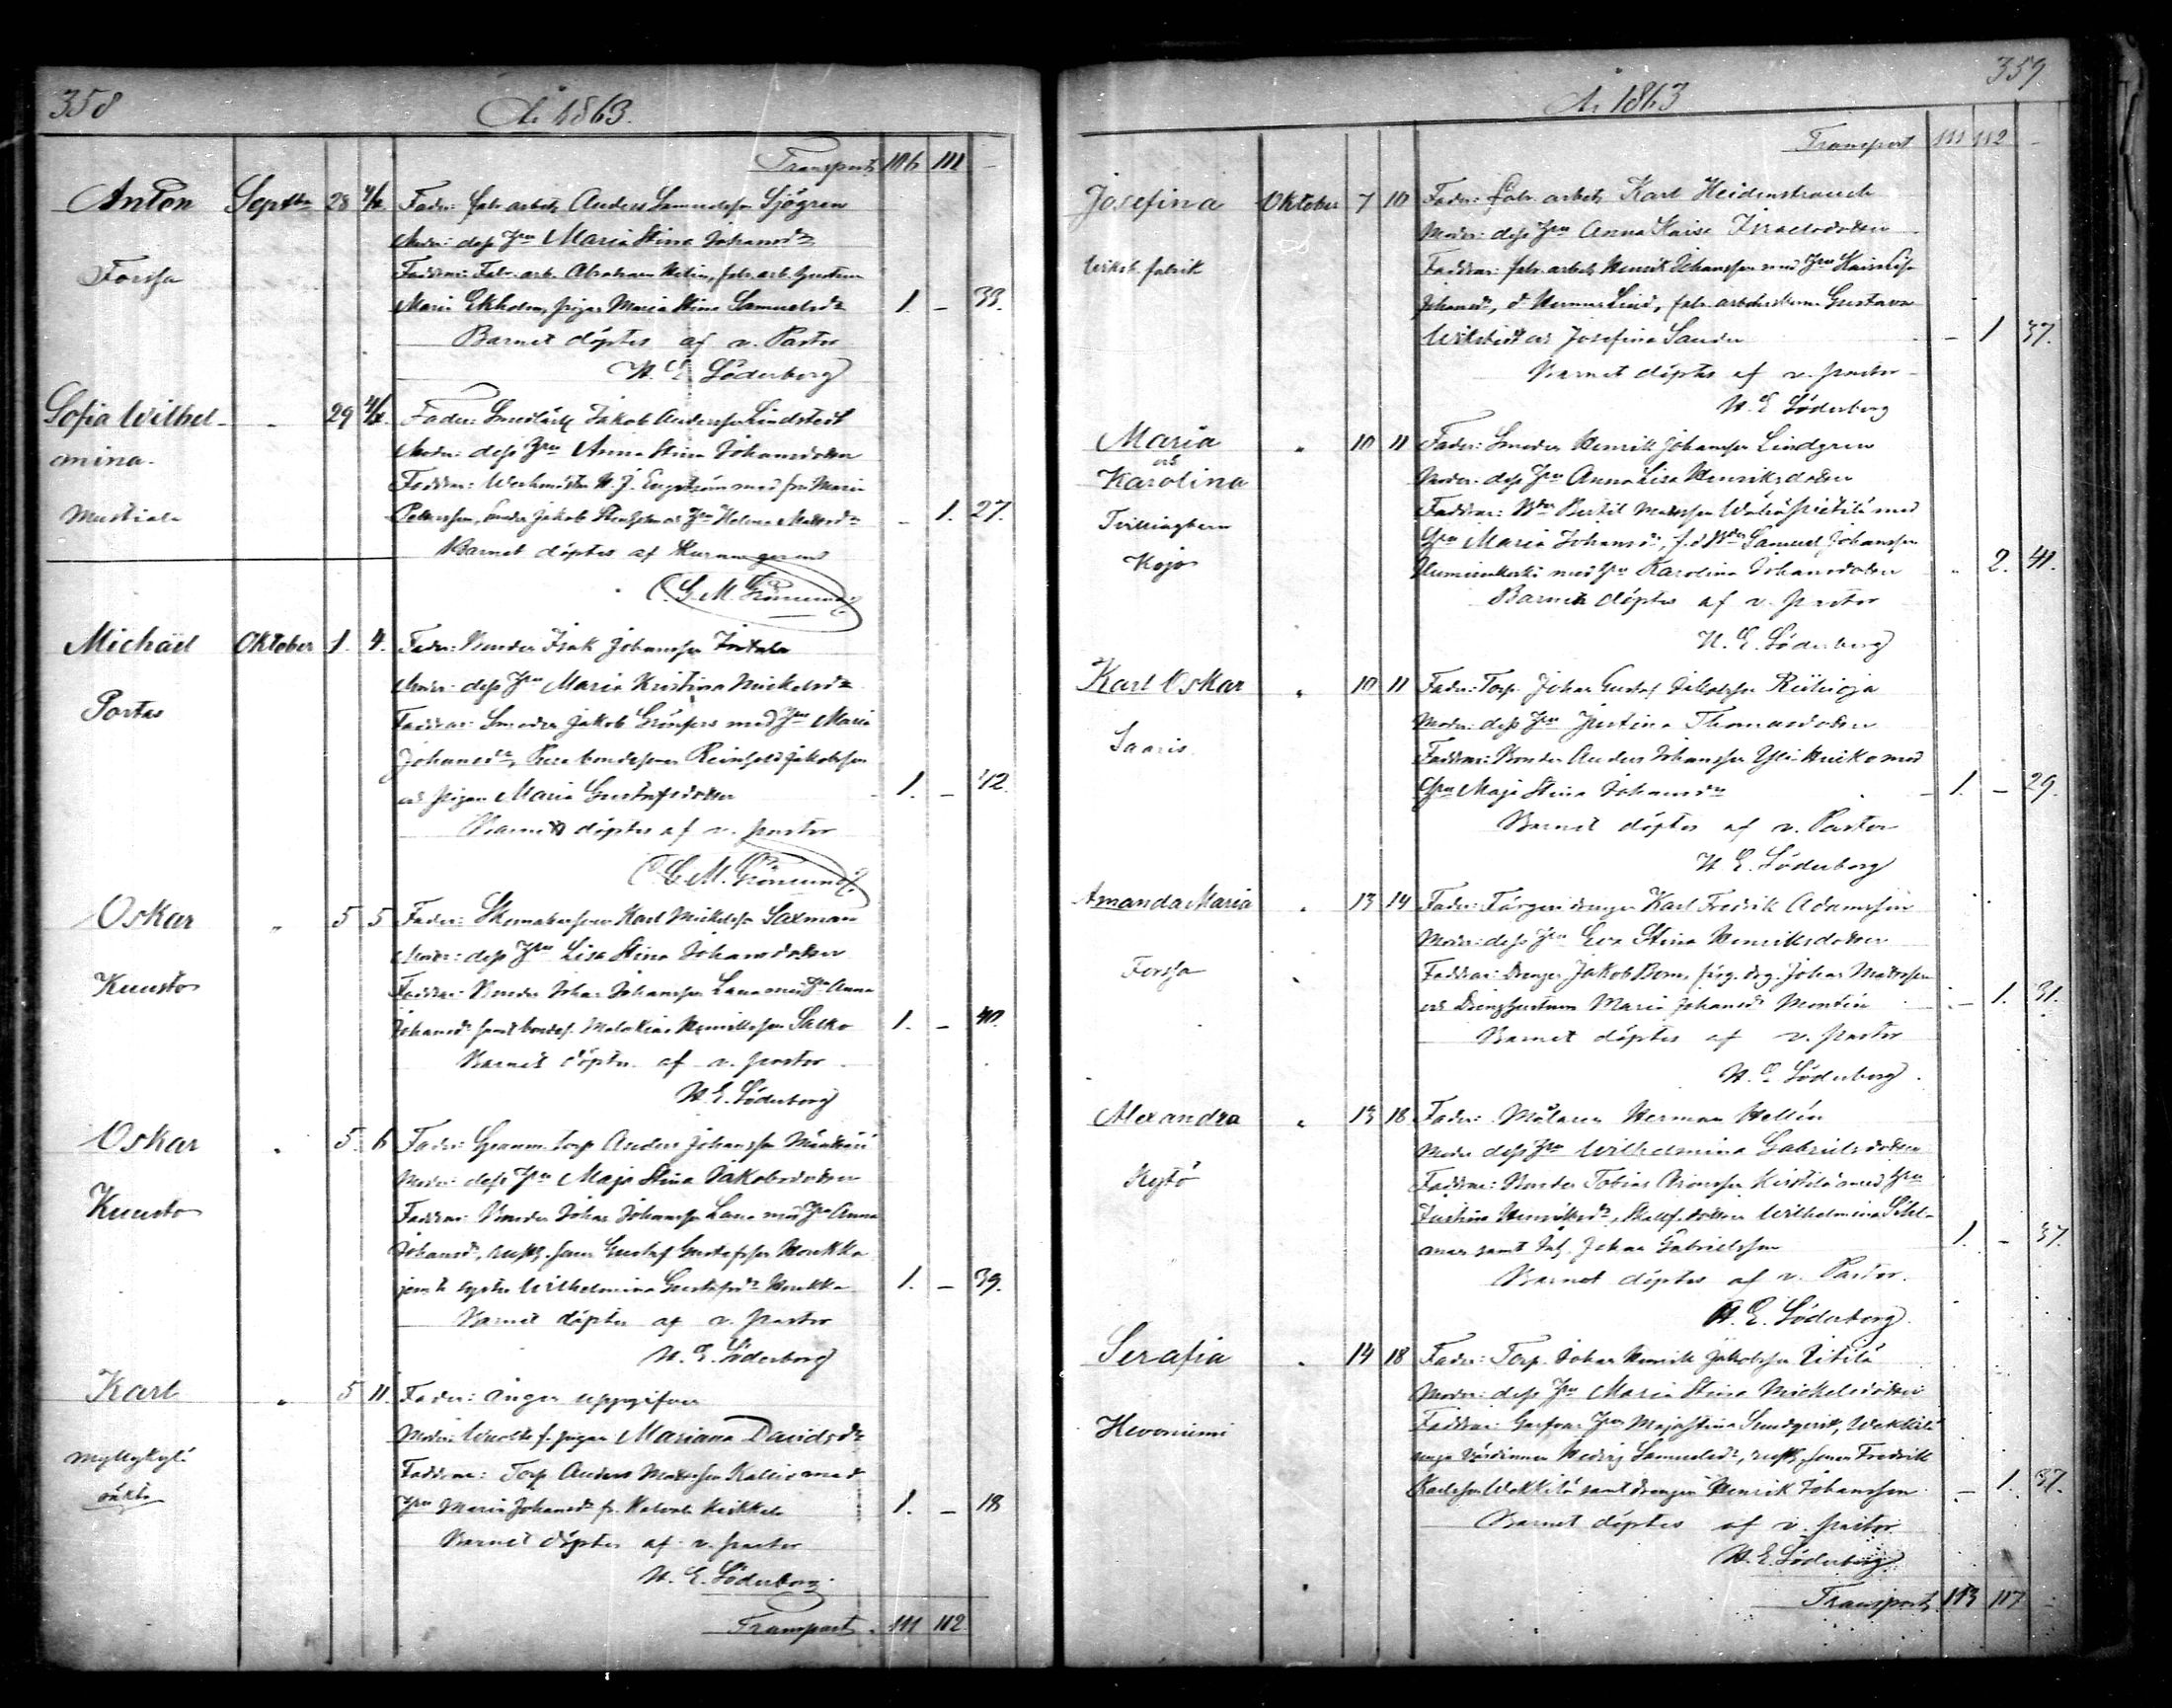 358
År 1863.
Transport 106 111 –
Anton Septbr 28 4/10 Fader: fabr. arbet. Anders Samuelsson Sjögren
Moder: dess hru Maria Stina Johansdr
Forssa
Faddrar: Fabr. arb. Abraham Helin, fabr. arb. hustrun
Maria Ekholm, pigan Maria Stina Samuelsdr 1. – 33.
Barnet döptes af v. Pastor
H. E. Söderberg
Sofia Wilhel- 29 Fader: Jakob Andersson Lindstedt
mina. Moder: dess hru Anna Stina Johansdotter
Faddrar: Werkmästar H. J. Engström med fru Maria
Mustiala
Pettersson, Jakob Stenholm och hru Helena Mattsdr – 1. 27.
Barnet döptes af
C. G. M. Grönlund
Michäel Oktober 1. 4. Fader: Bonden Isak Johansson
Moder: dess hru Maria Kristina Mickelsdr
Portas
Faddrar: Smeden Jakob Grönfors med hru Maria
Johansdr, bondesonen Reinhold Jakobsson
och pigan Maria Gustafsdotter 1. – 42.
Barnet döptes af v. pastor
C. G. M. Grönlund
Oskar " 5 5 Fader: Skomakaresonen Karl Mickelsson Saxman
Moder: dess hru Lisa Stina Johansdotter
Kuusto
Faddrar: Bonden Johan Johansson Lana med hru Anna
Johansdr samt bondes. Malakias Henriksson Salko 1. – 40.
Barnet döptes af v. pastor
H. E. Söderberg
Oskar " 5. 6 Fader: Torp. Anders Johansson
Moder: dess hru Maja Stina Jakobsdotter
Kuusto
Faddrar: Bonden Johan Johansson Lana med hru Anna
Johansdr, rusth. sonen Gustaf Gustafsson Houkka
jemte syster Wilhelmina Gustafsdr Houkka 1. – 39.
Barnet döptes af v. pastor
H. E. Söderberg
Karl " 5 11. Fader: ingen uppgifven
Moder: pigan Mariana Davidsdr
Myllykylä
Faddrar: Torp. Anders Mattsson Kallio med
oäkta
hru Maria Johansdr 1. – 18
Barnet döptes af v. pastor
H. E. Söderberg
Transport. 111 112
359.
År 1863
Transport 111 112 –
Josefina Oktober 7 10 Fader: fabr. arbet. Karl Heidenstrauch
Moder: dess hru Anna Kaisa Israelsdotter
Wiksb. fabrik
Faddrar: fabr. arbet. Henrik Johansson med hru Kaisa Lisa
Johansdr, d. Herman Lind, fabr. arbeterskorna Gustava
Wikstedt och Josefina Sander – 1 37.
Barnet döptes af v. pastor
H. E. Söderberg
Maria " 10 11 Fader: Smeden Henrik Johansson Lindgren
och
Karolina Moder: dess hru Anna Lisa Henriksdotter
Tvillingbarn
Faddrar: Bertil Mattsson med
hru Maria Johansdr, Samuel Johansson
Kojo
med hru Karolina Johansdotter " 2. 41.
Barnen döptes af v. pastor
H. E. Söderberg
Karl Oskar " 10 11 Fader: Torp. Johan Gustaf Jakobsson Riihioja
Moder: dess hru Justina Thomasdotter
Saaris.
Faddrar: Bonden Anders Johansson med
hru Maja Stina Johansdr 1. – 29.
Barnet döptes af v. Pastor
H. E. Söderberg
Amanda Maria " 13 14 Fader: Färgeri drengen Karl Fredrik Adamsson
Moder: dess hru Eva Stina Henriksdotter
Forssa
Faddrar: Drengen Jakob Bom, färg. drg. Johan Mattsson
och Drenghustrun Maria Johansdr Montin – 1. 31.
Barnet döptes af v. pastor
H. E. Söderberg
Alexandra " 13 18 Fader: Målaren Herman Hellén
Moder dess hru Wilhelmina Gabrielsdotter
Kytö
Faddrar: Bonden Tobias med hru
Justina Henriksdr, Wilhelmina
samt Johan Gabrielsson 1. – 37.
Barnet döptes af v. Pastor.
H. E. Söderberg.
Serafia " 14 18 Fader: Torp. Johan Henrik Jakobsson
Moder: dess hru Maria Stina Mickelsdotter
Hevoniemi
Faddrar: hru Maja Stina Sundqvist,
unga värdinnan Hedvig Samuelsdr, rusth. sonen Fredrik
Karlsson samt drengen Henrik Johansson – 1. 37.
Barnet döptes af v. pastor
H. E. Söderberg
Transport 113 117 –